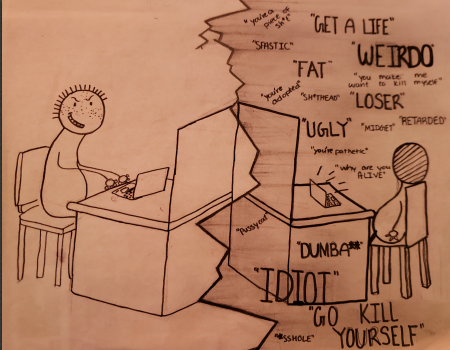 "you're a piece of sh*t"
"GET A LIFE"
"SPASTIC"
"WEIRDO"
"FAT"
"you make me
want to kill myself"
"you're adopted"
"SH*THEAD"
"LOSER"
"UGLY"
"MIDGET"
"RETARDED"
"you're pathetic"
"why are you
ALIVE"
"Pussycat"
"DUMBA**"
"IDIOT"
"GO KILL
YOURSELF"
"*SSHOLE"